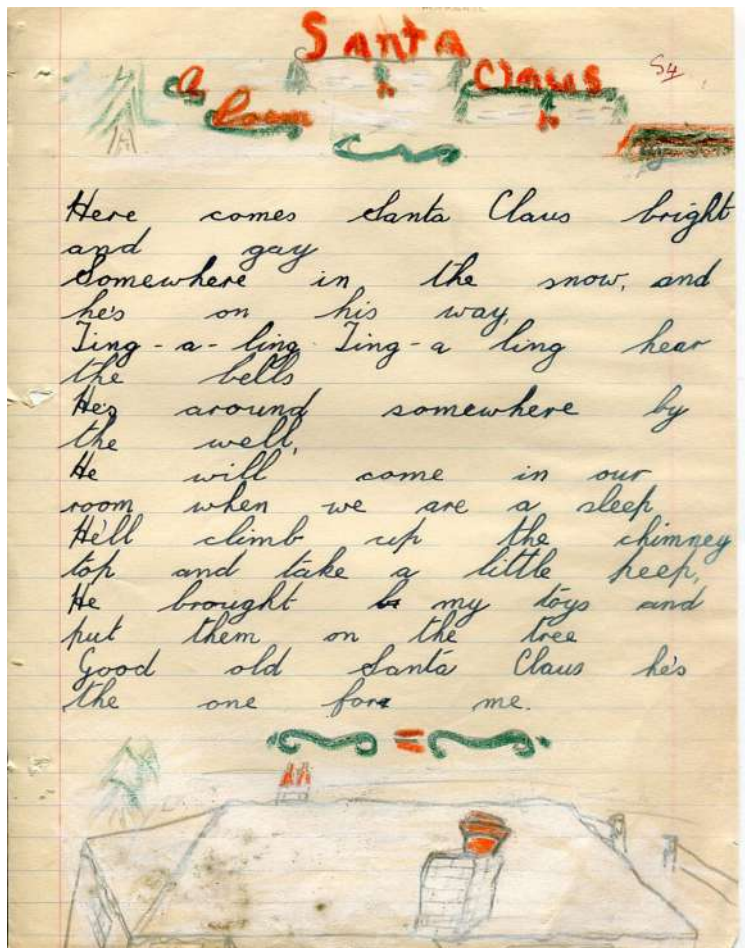 Santa
Claus
S4
A
Poem
Here comes Santa Claus bright
and gay
Somewhere in the snow, and
he's on his way,
Ting-a-ling Ting-a ling hear
the bells
He's around somewhere by
the well,
He will come in our
room when we are a sleep
He'll climb up the chimney
top and take a little peep,
He brought my toys and
put them on the tree
Good old Santa Claus he's
the one for me.